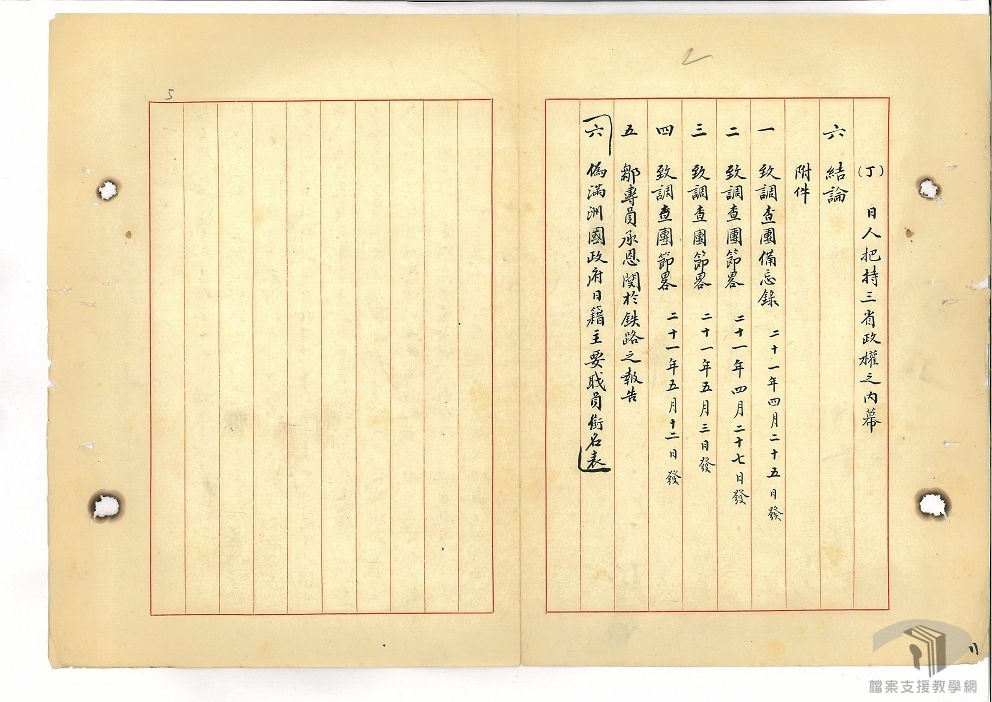 2
(丁) 日人把持三省政權之内幕
六 結論
附件
一 致調查團備忘錄 二十一年四月二十五日發
二 致調查團節畧 二十一年四月二十七日發
三 致調查團節畧 二十一年五月三日發
四 致調查團節畧 二十一年五月十二日發
五 鄒專員承恩関於鉄路之報告
六 偽滿洲國政府日籍主要職員銜名表
5
檔案支援教學網